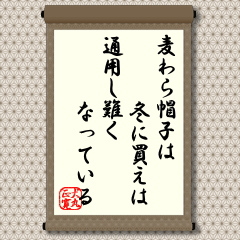 麦わら帽子は
冬に買えは
通用し難く
なっている